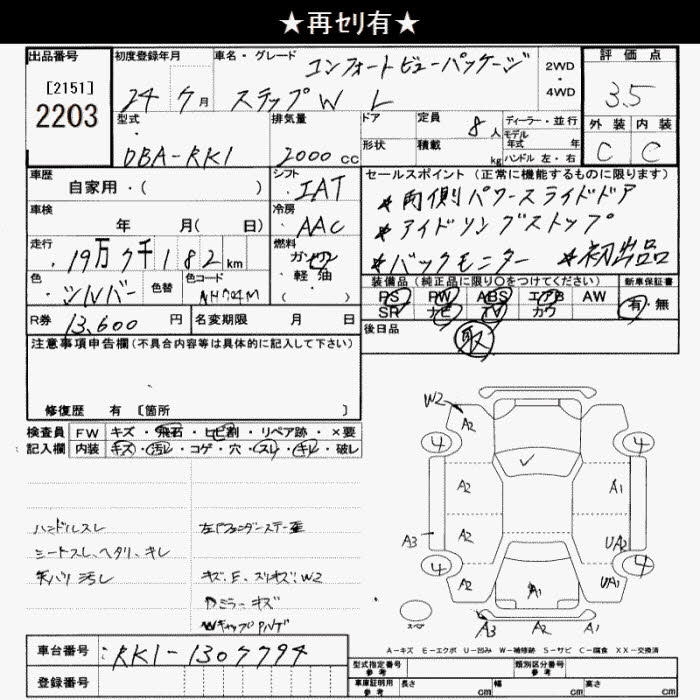 ★再ｾﾘ有★
出品番号
[2151]
2203
初度登録年月
24 年 7 月
車名・グレード
コンフォートビューパッケージ
ステップW L
2WD
・
4WD
評価点
3.5
外装 内装
C C
型式
DBA-RK1
排気量
2000 cc
ドア
形状
定員
8 人
積載
kg
ディーラー・並行
モデル
年式 年
ハンドル 左・右
車歴
自家用・( )
シフト
IAT
車検
年 月( 日)
冷房
AAC
走行
19万7千182 km
燃料
ガソリン
・軽油
色
シルバー
色替
色コード
NH704M
R券
13,600 円
名変期限 月 日
セールスポイント(正常に機能するものに限ります)
*両側パワースライドドア
*アイドリングストップ
*バックモニター *初出品
装備品(純正品に限り○をつけてください)
新車保証書
PS PW ABS エアB AW
SR ナビ TV カワ
有・無
後日品
取
注意事項申告欄(不具合内容等は具体的に記入して下さい)
修復歴 有 [箇所 ]
検査員
記入欄
FW キズ・飛石・ヒビ割・リペア跡・×要
内装 キズ・汚レ・コゲ・穴・スレ・キレ・破レ
ハンドルスレ
シートスレ、ヘタリ、キレ
天バリ汚し
キズ、E、スリキズ、W2
Dミラーキズ
W2
A2
4
4
A2
A1
A3
A2
UA2
4
4
A2
A1
UA1
スペア
A3
A2
A1
A－キズ E－エクボ U－凹み W－補修跡 S－サビ C－腐食 XX－交換済
車台番号
:RK1-1307794
登録番号
型式指定番号
参考
類別区分番号
参考
車庫証明用
参考
長さ cm
幅 cm
高さ cm